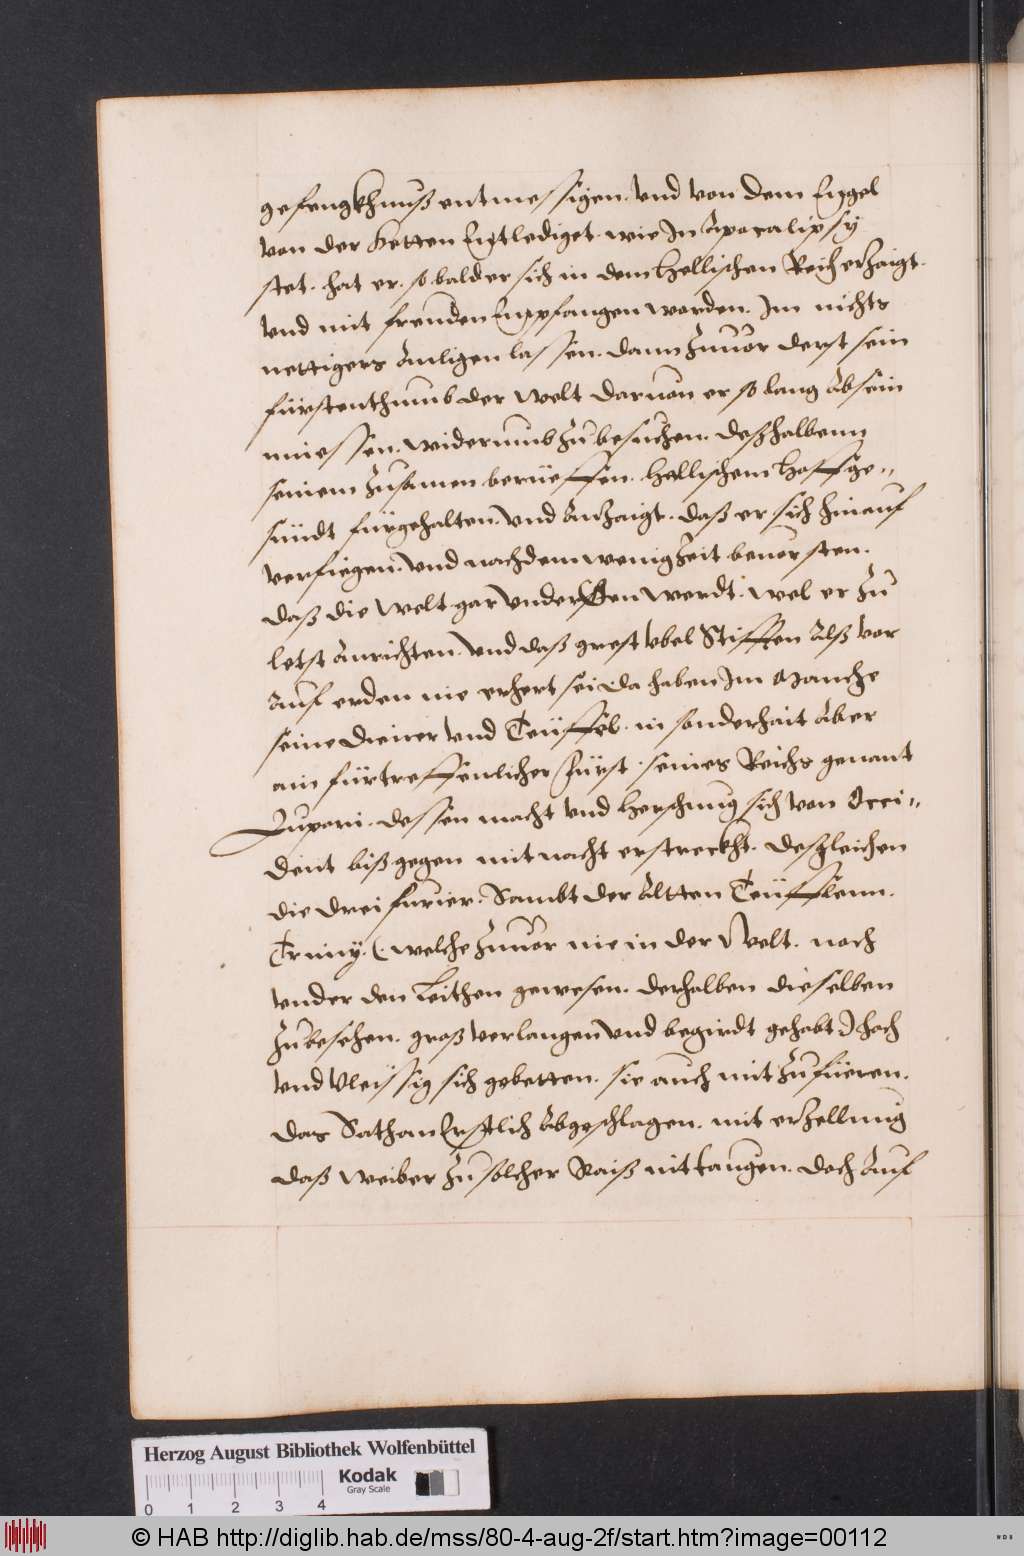 gefengkhnuß entmessigen. vnd von dem Engel
von der Ketten Entlediget. wie In Apocalipsy
stet. hat er. so bald er sich in dem Hellischen Reich erzaigt.
vnd mit freuden Empfangen worden. Im nichts
nettigers Anligen lassen. dann Zuuor derst sein
fürstenthumb der Welt daruon er so lang Absein
miessen. widerumb Zu besuchen. deßhalbenn
seinem Zusamen berüefften. Hellischem Hoffge"
sündt fürgehalten. vnd Anzaigt. daß er sich hinauf
verfiegen. vnd nachdem wenig Zeit beuor sten.
daß die Welt gar vndersten werdt. wel er Zu
letst Anrichten. vnd daß grest vbel Stifften Alß vor
Auf erden nie erhert sei da haben Im Manche
seine Diener vnd Teüffel. in sonderhait Aber
ain fürtreffenlicher Fürst. seines Reichs genant
Zupari. dessen macht vnd Herschung sich von Occi"
dent biß gegen mitnacht erstreckht. desgleichen
die drei furier. Sambt der Altten Teüfflenn.
Truny. (: welche Zuuor nie in der Welt. noch
vnder den Leithen gewesen. derhalben dieselben
Zu besehen. groß verlangen vnd begirdt gehabt) hoch
vnd vleissig sich gebetten. sie auch mit Zufüeren.
das Sathan Erstlich Abgeschlagen. mit erzellung
daß Weiber Zu solcher Raiß nit taugen. doch Auf
Herzog August Bibliothek Wolfenbüttel
0 1 2 3 4
Kodak
Gray Scale
© HAB http://diglib.hab.de/mss/80-4-aug-2f/start.htm?image=00112